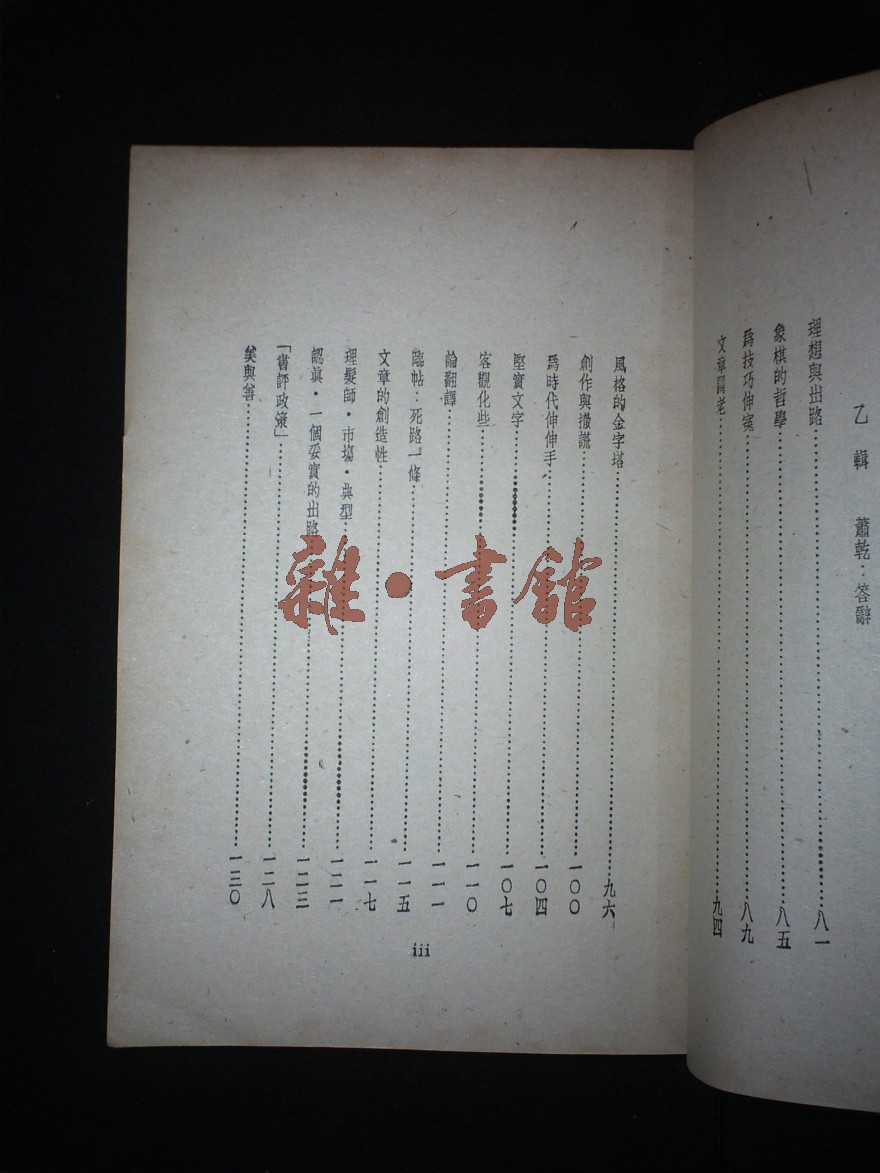 乙輯 蕭乾：答辭
理想與出路……八一
象棋的哲學……八五
爲技巧伸寃……八九
文章閻老……九四
風格的金字塔……九六
創作與撒謊……一〇〇
爲時代伸伸手……一〇四
堅實文字……一〇七
客觀化些……一一〇
論翻譯……一一一
臨帖：死路一條……一一五
文章的創造性……一一七
理髮師・市塲・典型……一二一
認眞・一個妥實的出路……一二三
「書評政策」……一二八
美與善……一三〇
iii
雜・書館